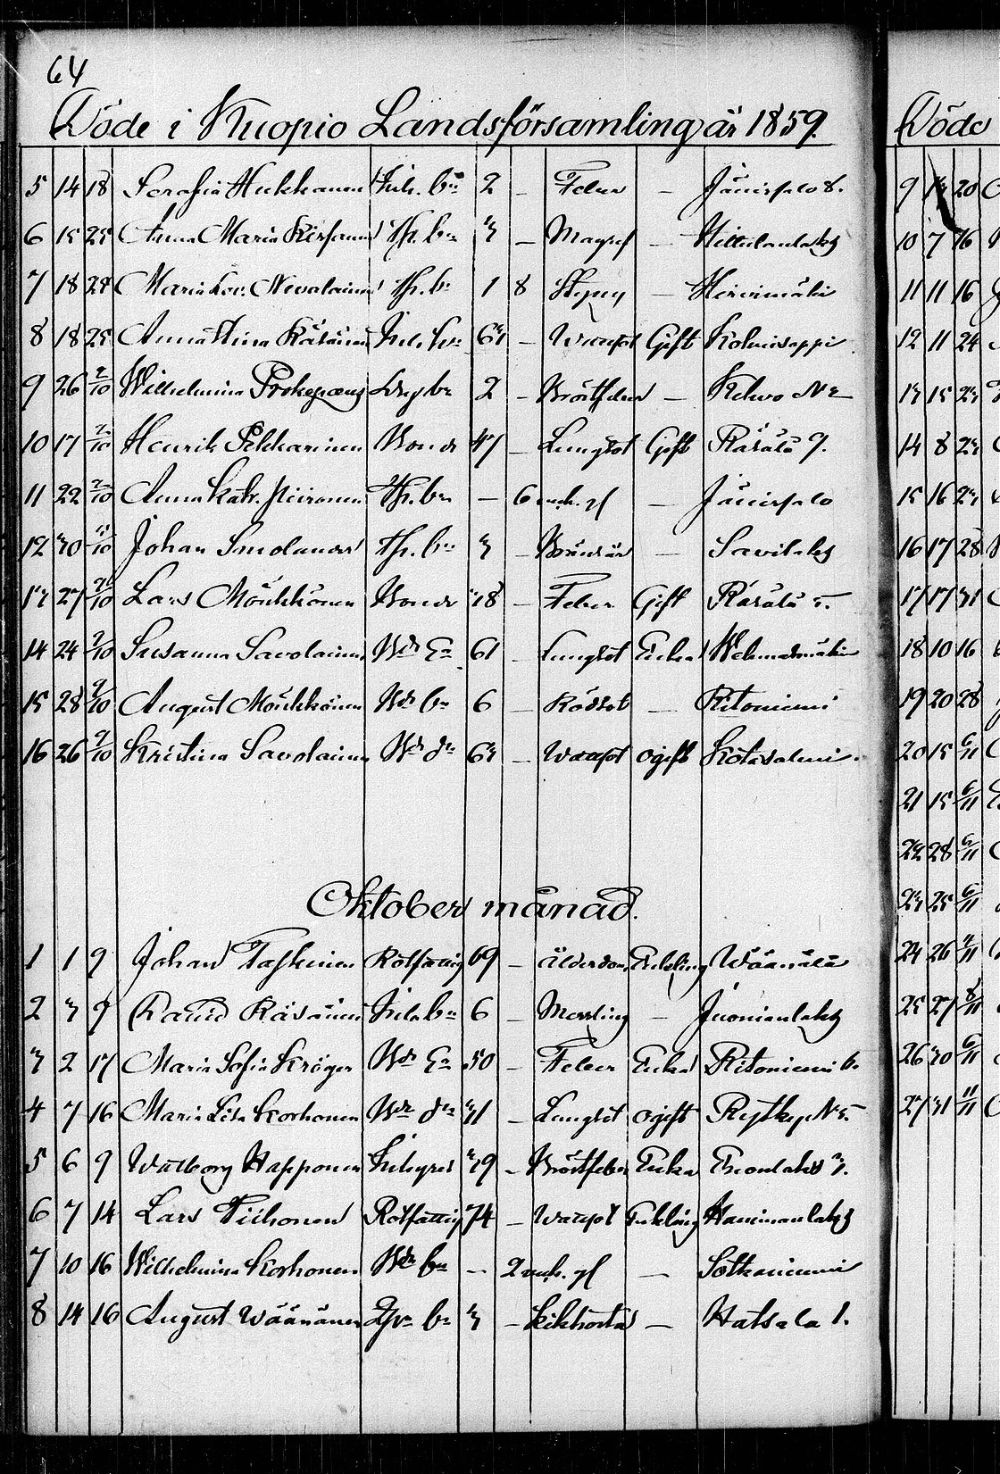 64
Döde i Kuopio Landsförsamling år 1859.
5 14 18 Serafia Hukkanen Inh. bn 2 – Feber – Jänissalo 8.
6 15 25 Anna Maria Th. bn 3 – Magsj –
7 18 28 Maria Lov. Nevalainen Th. bn 1 8 – Hirvimäki
8 18 25 Anna Stina Räsänen Inh. 63 – Wattsot Gift Kolmisoppi
9 26 2/10 Wilhelmina Prokopæus bn 2 – Bröstfeber – Kehvo No 2
10 17 2/10 Henrik Pekkarinen Bonde 47 – Lungsot Gift Räsälä 9.
11 22 2/10 Anna Katr. Piironen Th. bn – 6 – Jänissalo
12 30 /10 Johan Smolander Th. bn 3 – – Savilaks
13 27 /10 Lars Mönkkönen Bonde 38 – Feber Gift Räsälä 5.
14 24 9/10 Susanna Savolainen Bde En 61 – Lungsot Enka Wehmasmäki
15 28 9/10 August Mönkkönen Bde bn 6 – Rödsot – Ritoniemi
16 26 9/10 Kristina Savolainen Bde dr 63 – Wattsot ogift Kotasalmi.
Oktober månad.
1 1 9 Johan Taskinen Rotfattig 69 – Ålderdom Enkling Wäänälä
2 3 9 David Räsänen Inh. bn 6 – Messling – Juonionlaks
3 2 17 Maria Sofia Kröger Bde En 50 – Feber Enka Ritoniemi 6.
4 7 16 Maria Lisa Korhonen Bde dr 31 – Lungsot ogift Rytky No 5.
5 6 9 Walborg Happonen Inhyses 39 – Bröstfeber Enka 3.
6 7 14 Lars Tiihonen Rotfattig 74 – Wattsot Enkling Haminanlaks
7 10 16 Wilhelmina Korhonen Bde bn – 2 – Sotkaniemi
8 14 16 August Wäänänen bn 3 – Kikhosta – Hatsala 1.
Döde
9 20
10 7 16
11 11 16
12 11 24
13 15 23
14 8 23
15 16 23
16 17 28
17 17 31
18 10 16
19 20 28
20 15 6/11
21 15 6/11
22 28 6/11
23 25 6/11
24 26 /11
25 27 /11
26 30 6/11
27 31 /11